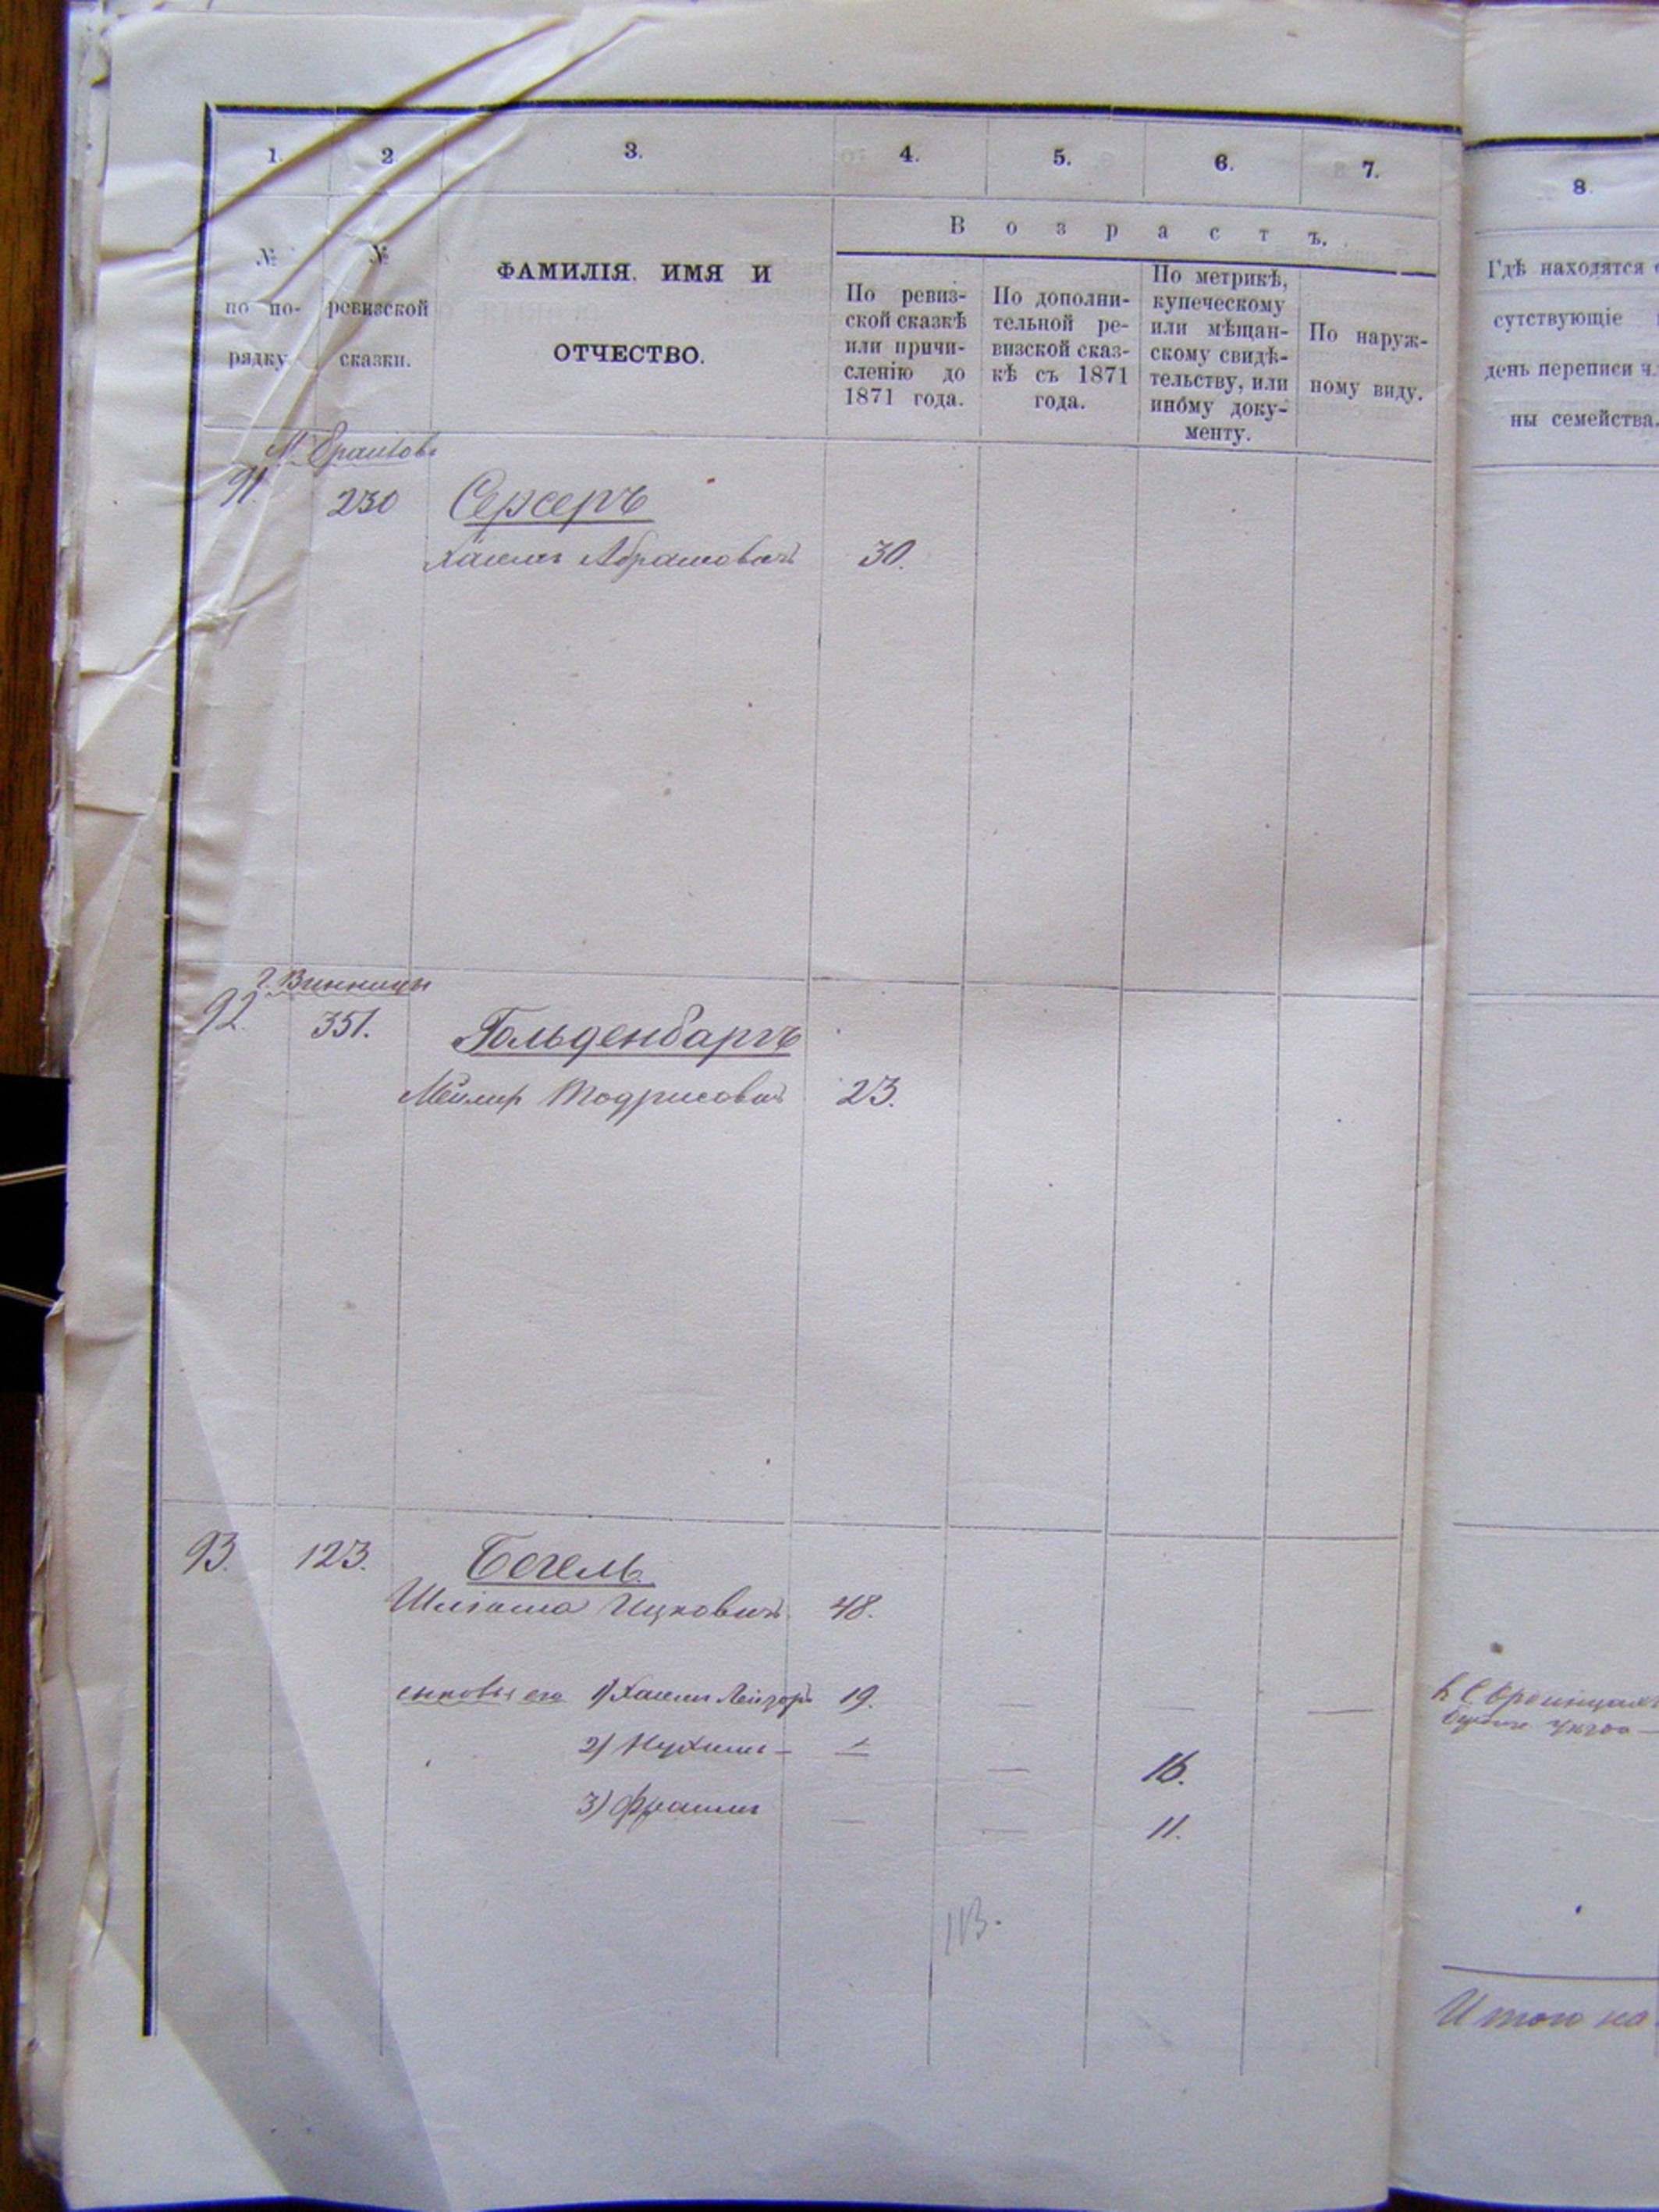 1.
2
3.
4.
5.
6.
7.
8.
В о з р а с т ъ.
№ по по-
рядку
№
ревизской
сказки.
ФАМИЛІЯ, ИМЯ И
ОТЧЕСТВО.
По ревиз-
ской сказкѣ
или причи-
сленію до
1871 года.
По дополни-
тельной ре-
визской сказ-
кѣ съ 1871
года.
По метрикѣ,
купеческому
или мѣщан-
скому свидѣ-
тельству, или
иному доку-
менту.
По наруж-
ному виду.
Гдѣ находятся
сутствующіе
день переписи
ны семейства.
М.
91. 230 Серсеръ
Абрамовичъ 30.
г. Винницы
92. 351. Гольденбаргъ
Тодрисовичъ 23.
93. 123. Бегель
Ицковичъ 48.
сыновья его 1) Хаимъ Лейзоръ 19. — — —
2) Нухимъ — — — 16.
3) Фроимъ — — 11.
113.
Итого на